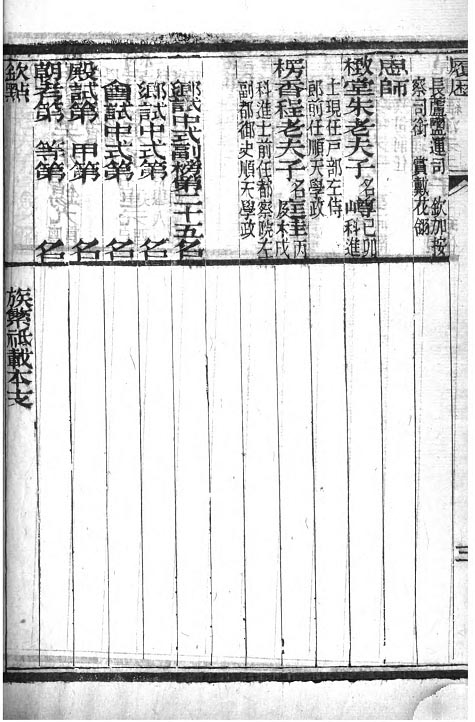 履歷
長蘆鹽運司 欽加按
察司銜 賞戴花翎
恩師
堂朱老夫子 名嶟 己卯
科進
士現任戶部左侍
郎前任順天學政
楞香程老夫子 名庭桂 丙
戌
科進士前任都察院左
副都御史順天學政
鄉試中式副榜第二十五名
鄉試中式第 名
會試中式第 名
殿試第 甲第 名
朝考第 等第 名
欽點
族繁祗載本支
三